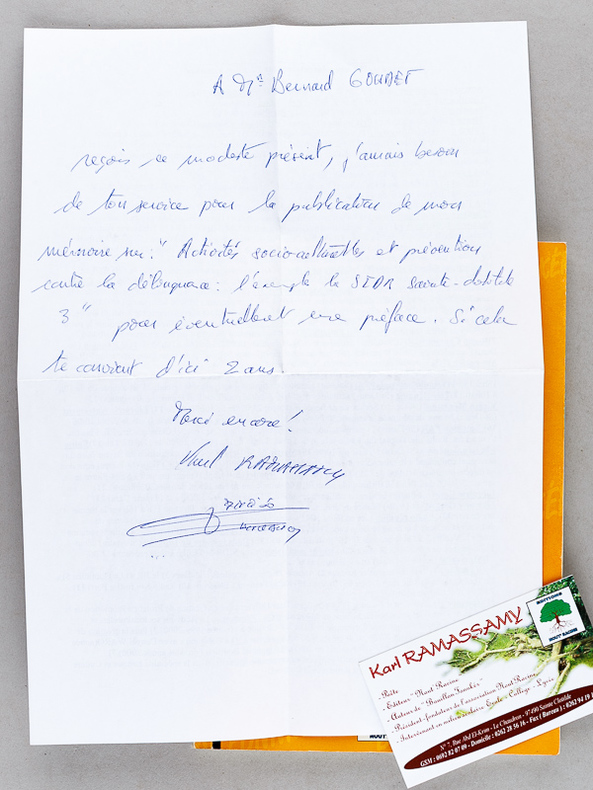 A Mr Bernard GOUDET
reçois ce modeste présent, j'aurais besoin
de ton service pour la publication de mon
mémoire sur : " Activités socioculturelles et prévention
contre la délinquance : l'exemple la SIDR Sainte-Clotilde
3 " pour éventuellement une préface. Si cela
te convient d'ici 2 ans.
Merci encore !
Karl RAMASSAMY
Karl RAMASSAMY
- Poète
- Editeur "Mout Racine"
- Auteur de "Bouillon Tanclèr"
- Président-fondateur de l'association Mout Racine
- Intervenant en milieu scolaire École - Collège - Lycée
N° 7, Rue Abd El-Krim - Le Chaudron - 97490 Sainte Clotilde
GSM : 0692 82 07 09 - Domicile : 0262 28 56 16 - Fax ( Bureau ) : 0262 94 19
MOUT RACINE